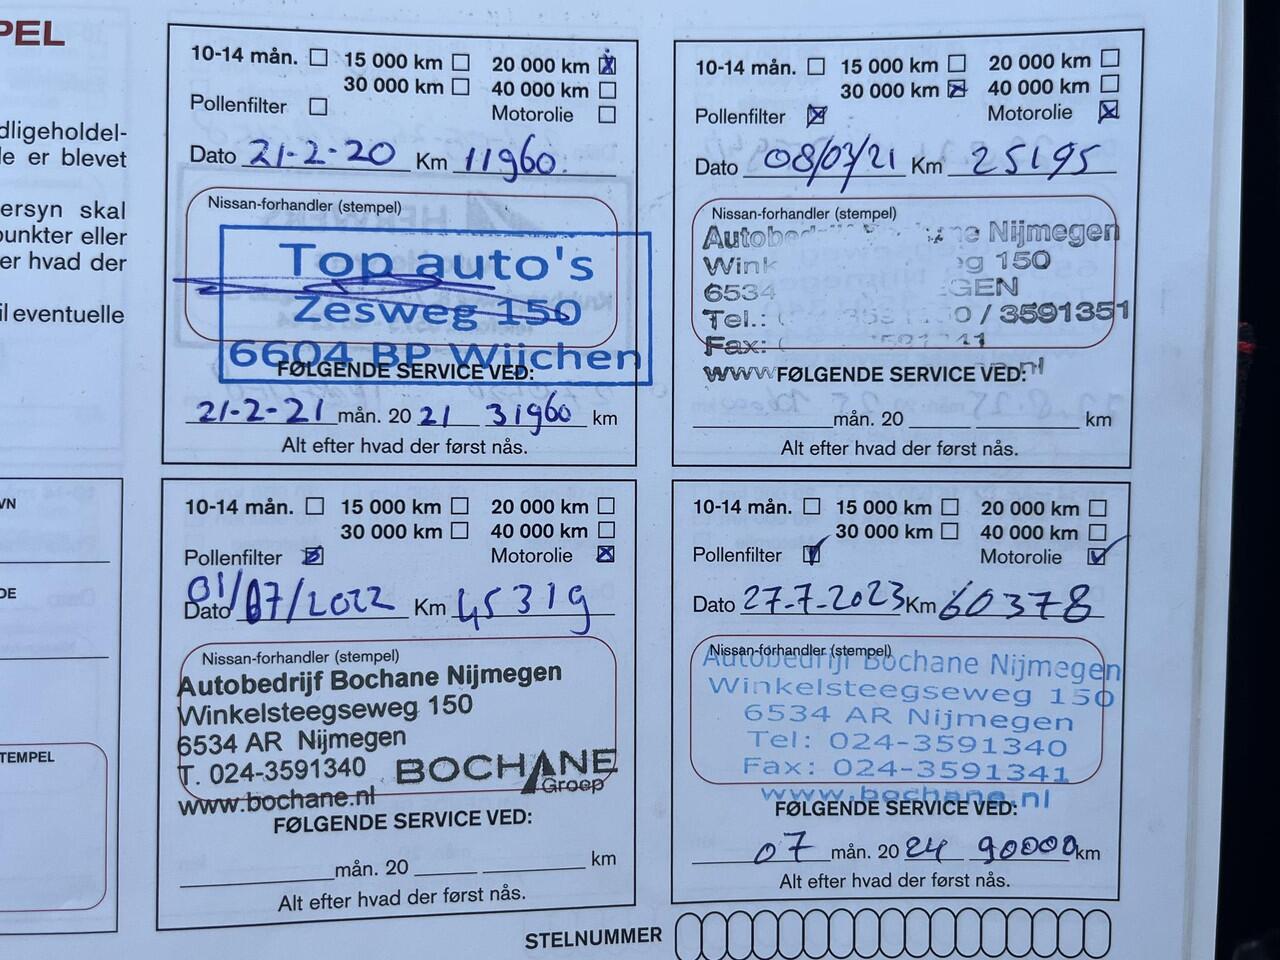 PEL
dligeholdel-
le er blevet
ersyn skal
punkter eller
er hvad der
il eventuelle
VN
DE
TEMPEL
10-14 mån. 15 000 km 20 000 km
30 000 km 40 000 km
Pollenfilter Motorolie
Dato 21-2-20 Km 11960.
Nissan-forhandler (stempel)
Top auto's
Zesweg 150
6604 BP Wijchen
FØLGENDE SERVICE VED:
21-2-21 mån. 20 21 31960 km
Alt efter hvad der først nås.
10-14 mån. 15 000 km 20 000 km
30 000 km 40 000 km
Pollenfilter Motorolie
Dato 08/03/21 Km 25195
Nissan-forhandler (stempel)
Nijmegen
150
6534
Tel.: / 3591351
Fax:
FØLGENDE SERVICE VED:
mån. 20 km
Alt efter hvad der først nås.
10-14 mån. 15 000 km 20 000 km
30 000 km 40 000 km
Pollenfilter Motorolie
Dato 01/07/2022 Km 45319
Nissan-forhandler (stempel)
Autobedrijf Bochane Nijmegen
Winkelsteegseweg 150
6534 AR Nijmegen
T. 024-3591340 BOCHANE
Groep
www.bochane.nl
FØLGENDE SERVICE VED:
mån. 20 km
Alt efter hvad der først nås.
10-14 mån. 15 000 km 20 000 km
30 000 km 40 000 km
Pollenfilter Motorolie
Dato 27.7.2023 Km 60378
Nissan-forhandler (stempel)
Autobedrijf Bochane Nijmegen
Winkelsteegseweg 150
6534 AR Nijmegen
Tel: 024-3591340
Fax: 024-3591341
www.bochane.nl
FØLGENDE SERVICE VED:
07 mån. 20 24 90000 km
Alt efter hvad der først nås.
STELNUMMER